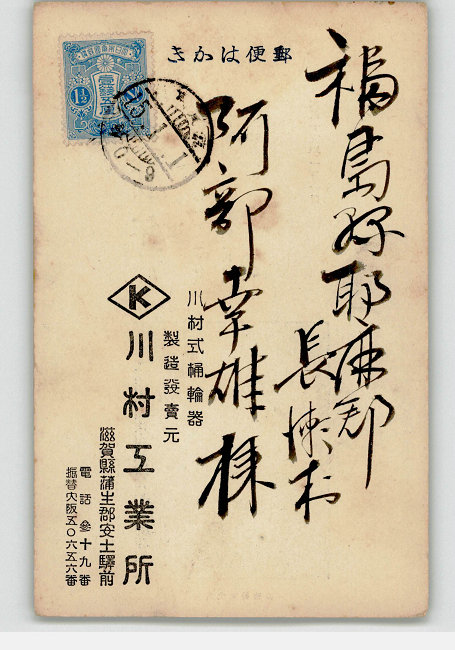 郵便はかき
福島縣耶麻郡
長瀬村
阿部幸雄様
川村式桶輪器
製造發賣元
K
川村工業所
滋賀縣蒲生郡安土驛前
電話參十九番
振替大阪五〇六五六番
壹錢五厘
1½
15.1.1